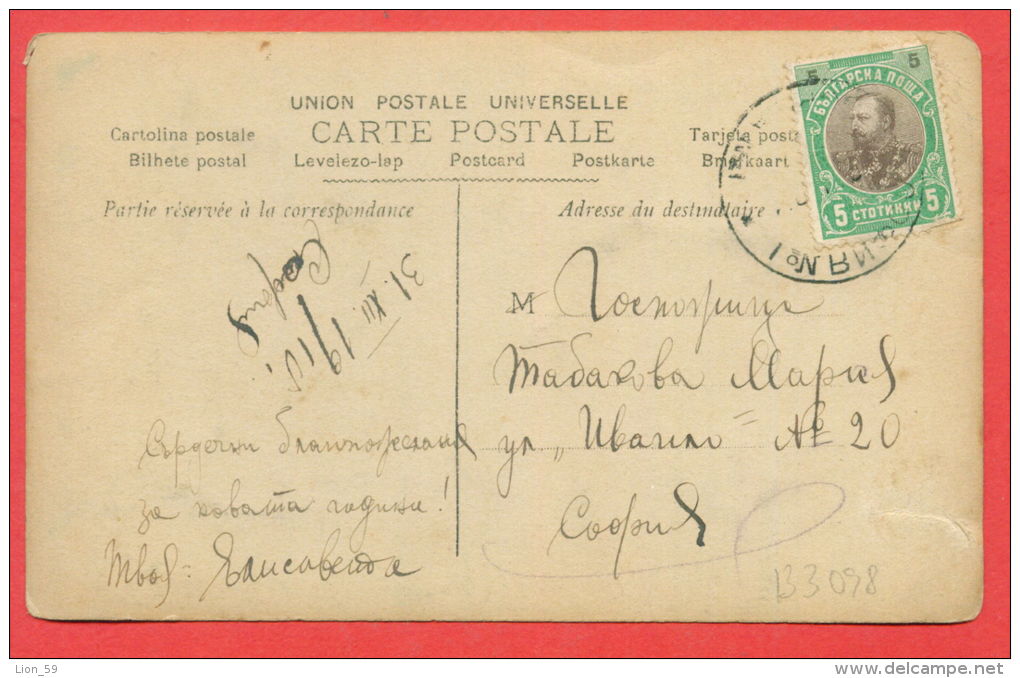 5 5
БЪЛГАРСКА ПОЩА
5 СТОТИНКИ 5
UNION POSTALE UNIVERSELLE
CARTE POSTALE
Cartolina postale Tarjeta posta
Bilhete postal Levelezo-lap Postcard Postkarte Briefkaart
Partie réservée à la correspondance
Adresse du destinataire
София
31. XII
1910
M Госпожица
Табакова Мария
ул. „Ивайло" № 20
София
Сърдечни благопожелания
за новата година!
Твоя: Елисавета
№ 1
B3098
Lion_59
delcampe.net